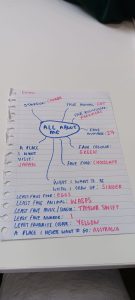 STARSIGN: LIBRA
FAVE ANIMAL: CAT
FAVE
ALL ABOUT
ME
FAVE
NUMBER: 29
A PLACE
I WANT
VISIT:
JAPAN
FAVE COLOUR:
GREEN
FAVE FOOD: CHOCOLATE
WHAT I WANT TO BE
WHEN I GREW UP: SINGER
LEAST FAVE FOOD: EGGS
LEAST FAVE ANIMAL: WASPS
LEAST FAVE MUSIC/SINGER: TAYLOR SWIFT
LEAST FAVE NUMBER: 1
LEAST FAVOURITE COLOUR: YELLOW
A PLACE I NEVER WANT TO GO: AUSTRALIA